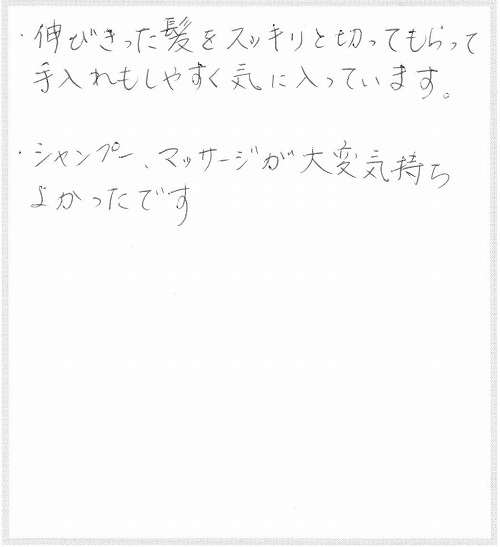 ・伸びきった髪をスッキリと切ってもらって
手入れもしやすく気に入っています。
・シャンプー、マッサージが大変気持ち
よかったです